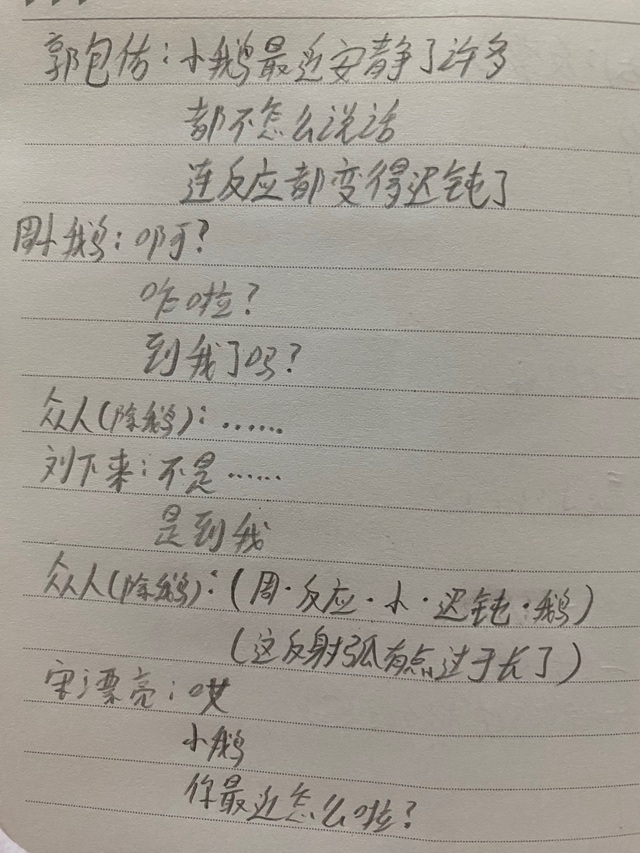 郭包佑：小鹅最近安静了许多
都不怎么说话
连反应都变得迟钝了
周小鹅：啊？
咋啦？
到我了吗？
众人(除鹅)：……
刘下来：不是……
是到我
众人(除鹅)：(周·反应·小·迟钝·鹅)
(这反射弧有点过于长了)
宋漂亮：哎
小鹅
你最近怎么啦？